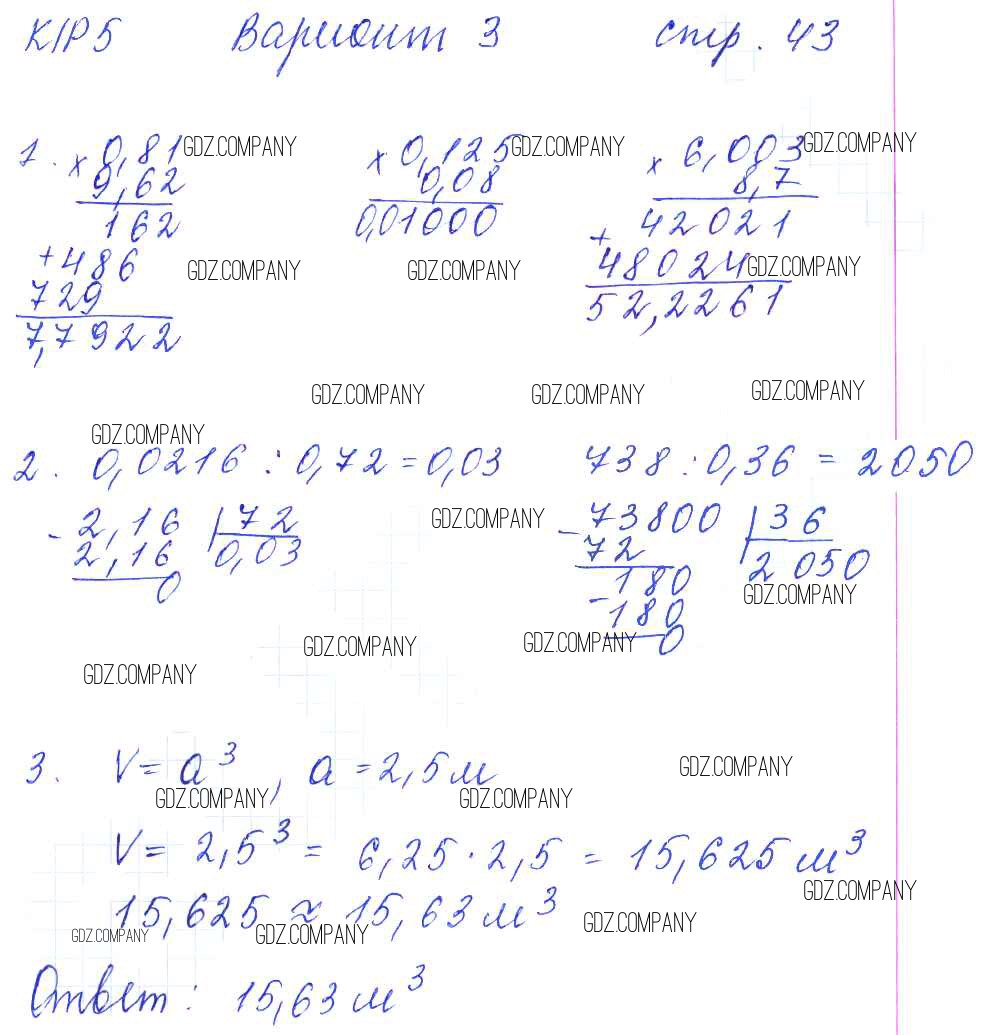 К/Р 5 Вариант 3 стр. 43
1. × 0,81 GDZ.COMPANY × 0,125 GDZ.COMPANY × 6,003 GDZ.COMPANY
9,62 0,08 8,7
162 0,01000 42021
+ 486 GDZ.COMPANY GDZ.COMPANY + 48024 GDZ.COMPANY
729 52,2261
7,7922
GDZ.COMPANY GDZ.COMPANY GDZ.COMPANY
GDZ.COMPANY
2. 0,0216 : 0,72 = 0,03 738 : 0,36 = 2050
- 2,16 | 72 GDZ.COMPANY - 73800 | 36
2,16 0,03 72 2050
0 180 GDZ.COMPANY
- 180
GDZ.COMPANY GDZ.COMPANY 0
GDZ.COMPANY
3. V = a³, a = 2,5 м GDZ.COMPANY
GDZ.COMPANY GDZ.COMPANY
V = 2,5³ = 6,25 · 2,5 = 15,625 м³
GDZ.COMPANY
15,625 ≈ 15,63 м³ GDZ.COMPANY
GDZ.COMPANY GDZ.COMPANY
Ответ: 15,63 м³